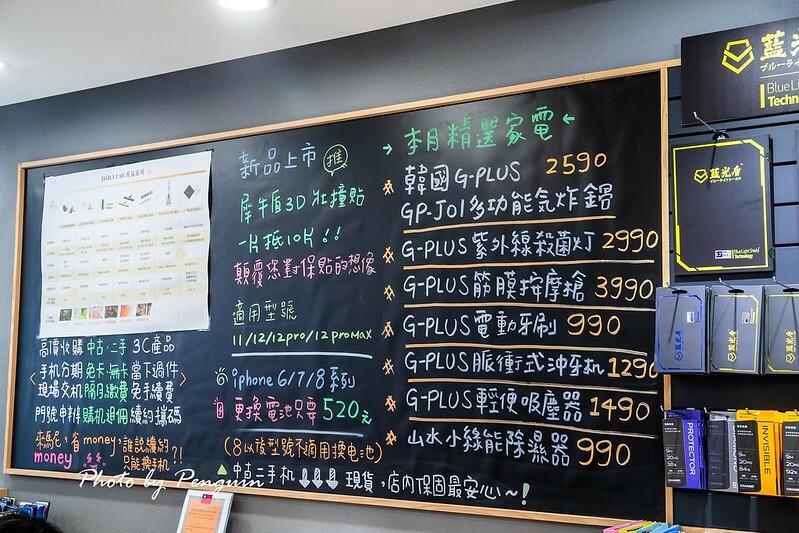 DAILY LAB 香氛系列
高價收購 中古・二手 3C產品
手机分期 免卡・無卡 當下過件
現場交机 隔月繳費 免手續費
門號申辦 購机退佣 續約攜碼
來馬克，省money，誰說續約只能換手机?!
money
新品上市 推
犀牛盾3D壯撞貼
一片抵10片!!
顛覆您對保貼的想像
適用型號
11/12/12pro/12proMax
iphone 6/7/8系列
更換電池只要520元
(8以後型號不適用換電池)
中古二手机 ⇩⇩⇩ 現貨，店內保固最安心~!
→ 本月精選家電 ←
韓國G-PLUS 2590
GP-J01多功能気炸鍋
G-PLUS紫外線殺菌灯 2990
G-PLUS筋膜按摩搶 3990
G-PLUS電動牙刷 990
G-PLUS脈衝式沖牙机 1290
G-PLUS輕便吸塵器 1490
山水小綠能除濕器 990
Photo by Penguin
藍光
ブルーライト
Blue Li
Techn
藍光盾
ブルーライトシールド
Blue Light Shield
Technology
PROTECTOR
INVISIBLE